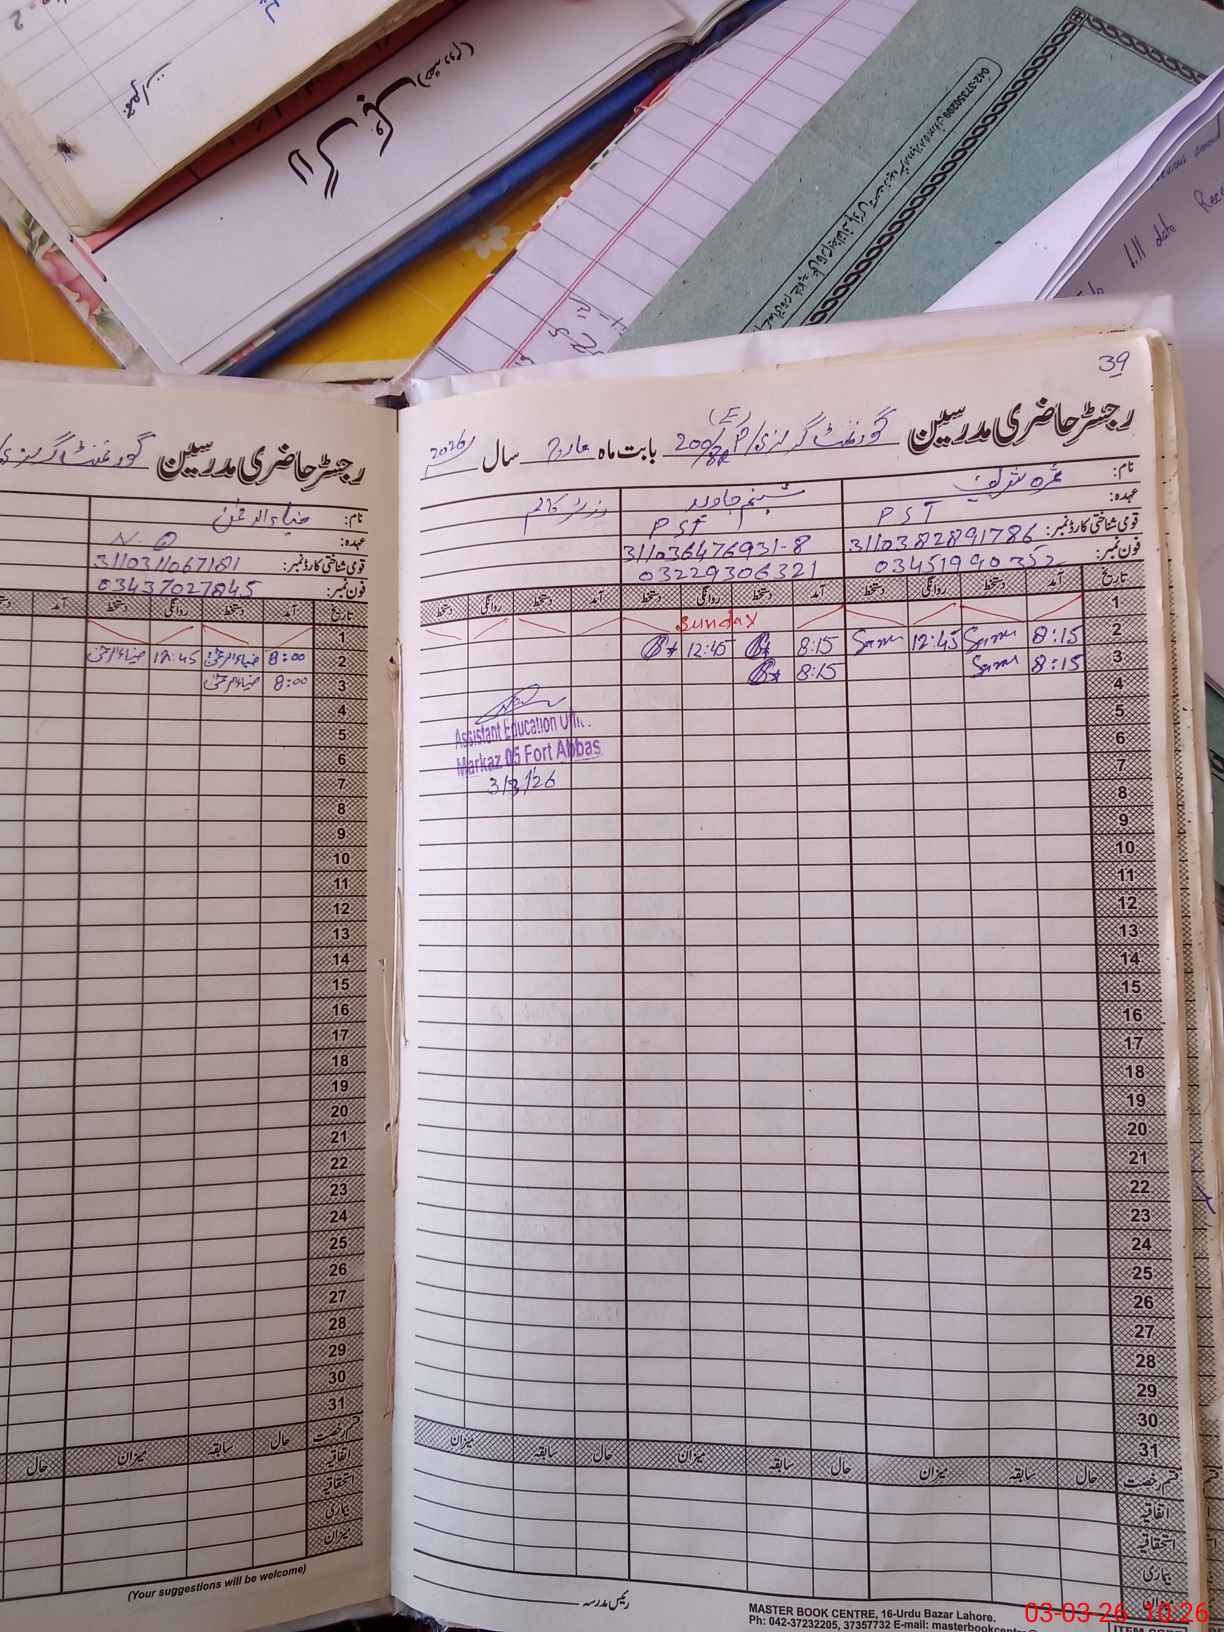 لاگ بک (حصہ دوم)
042-37350209
bill date
39
رجسٹر حاضری مدرسین گورنمنٹ گرلز (E) بابت ماہ مارچ سال 2026
نام:
شبنم جاوید
عہدہ: PST PST
قومی شناختی کارڈ نمبر: 3110382891786 311036476931-8
فون نمبر: 03451990352 03229306321
تاریخ آمد دستخط روانگی دستخط آمد دستخط روانگی دستخط آمد دستخط روانگی دستخط
1 Sunday
2 8:15 12:45 8:15 12:45
3 8:15 8:15
4
5
6
7
8
9
10
11
12
13
14
15
16
17
18
19
20
21
22
23
24
25
26
27
28
29
30
31
Assistant Education
Markaz 05 Fort Abbas
3/3/26
قسم رخصت حال سابقہ میزان حال سابقہ میزان حال سابقہ میزان
اتفاقیہ
استحقاقیہ
بیماری
میزان
رئیس مدرسہ
MASTER BOOK CENTRE, 16-Urdu Bazar Lahore.
Ph: 042-37232205, 37357732 E-mail:
رجسٹر حاضری مدرسین گورنمنٹ گرلز
نام: ضیاء الرحمن
عہدہ: N-Q
قومی شناختی کارڈ نمبر: 3110311067181
فون نمبر: 03437027845
تاریخ آمد دستخط روانگی دستخط آمد
1
2 8:00 ضیاء الرحمن 12:45 ضیاء الرحمن
3 8:00 ضیاء الرحمن
4
5
6
7
8
9
10
11
12
13
14
15
16
17
18
19
20
21
22
23
24
25
26
27
28
29
30
31
قسم رخصت حال سابقہ میزان حال
اتفاقیہ
استحقاقیہ
بیماری
میزان
(Your suggestions will be welcome)
03-03-26 10:26